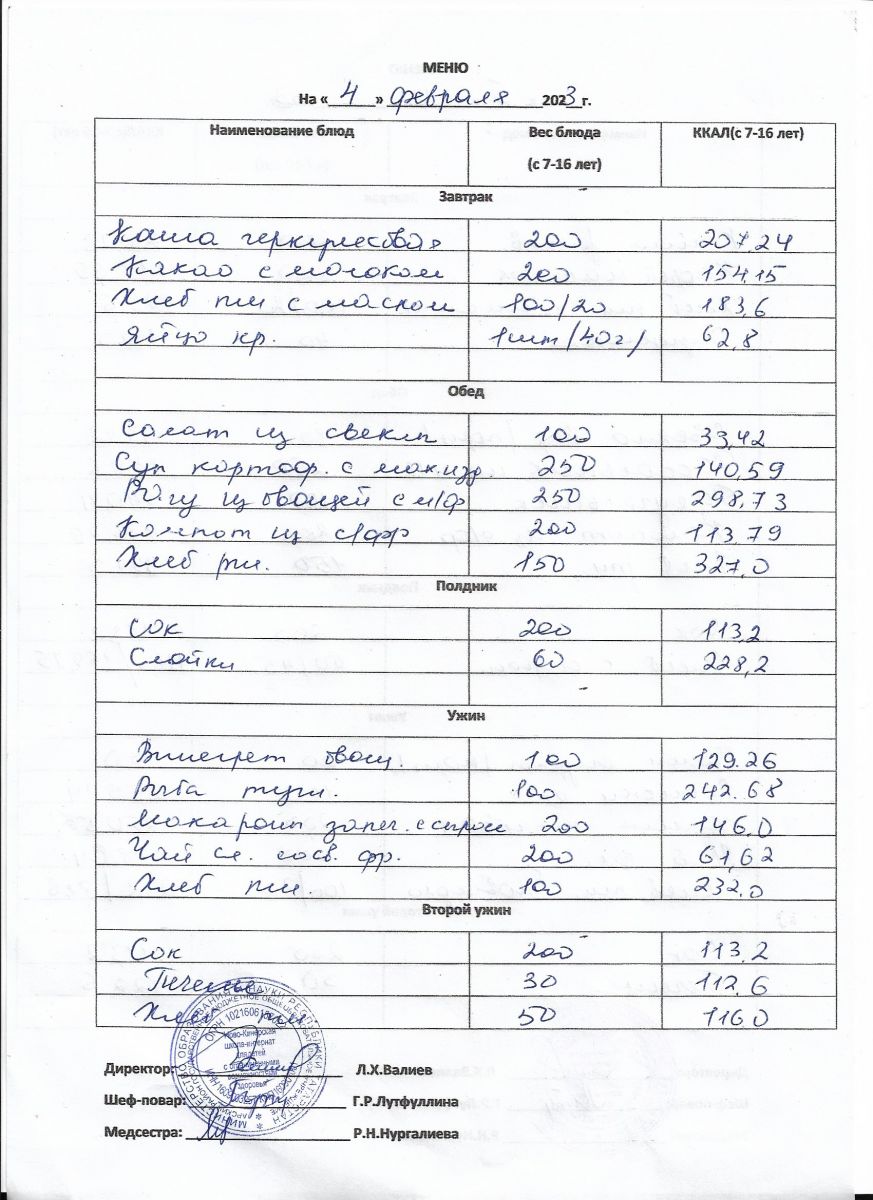 МЕНЮ
На « 4 » февраля 2023 г.
Наименование блюд Вес блюда (с 7-16 лет) ККАЛ(с 7-16 лет)
Завтрак
Каша геркулесовая 200 207,24
Какао с молоком 200 154,15
Хлеб пш с маслом 100/20 183,6
Яйцо кр. 1шт/40г/ 62,8
Обед
Салат из свеклы 100 33,42
Суп картоф. с мак.изд. 250 140,59
Рагу из овощей с м/ф 250 298,73
Компот из с/фр 200 113,79
Хлеб рж. 150 327,0
Полдник
Сок 200 113,2
Слойки 60 228,2
Ужин
Винегрет овощ 100 129.26
Рыба туш. 100 242.68
Макароны запеч. с сыром 200 146.0
Чай сл. со св. фр. 200 61,62
Хлеб пш. 100 232.0
Второй ужин
Сок 200 113.2
Печенье 30 112.6
Хлеб пш 50 116.0
Директор: Л.Х.Валиев
Шеф-повар: Г.Р.Лутфуллина
Медсестра: Р.Н.Нургалиева